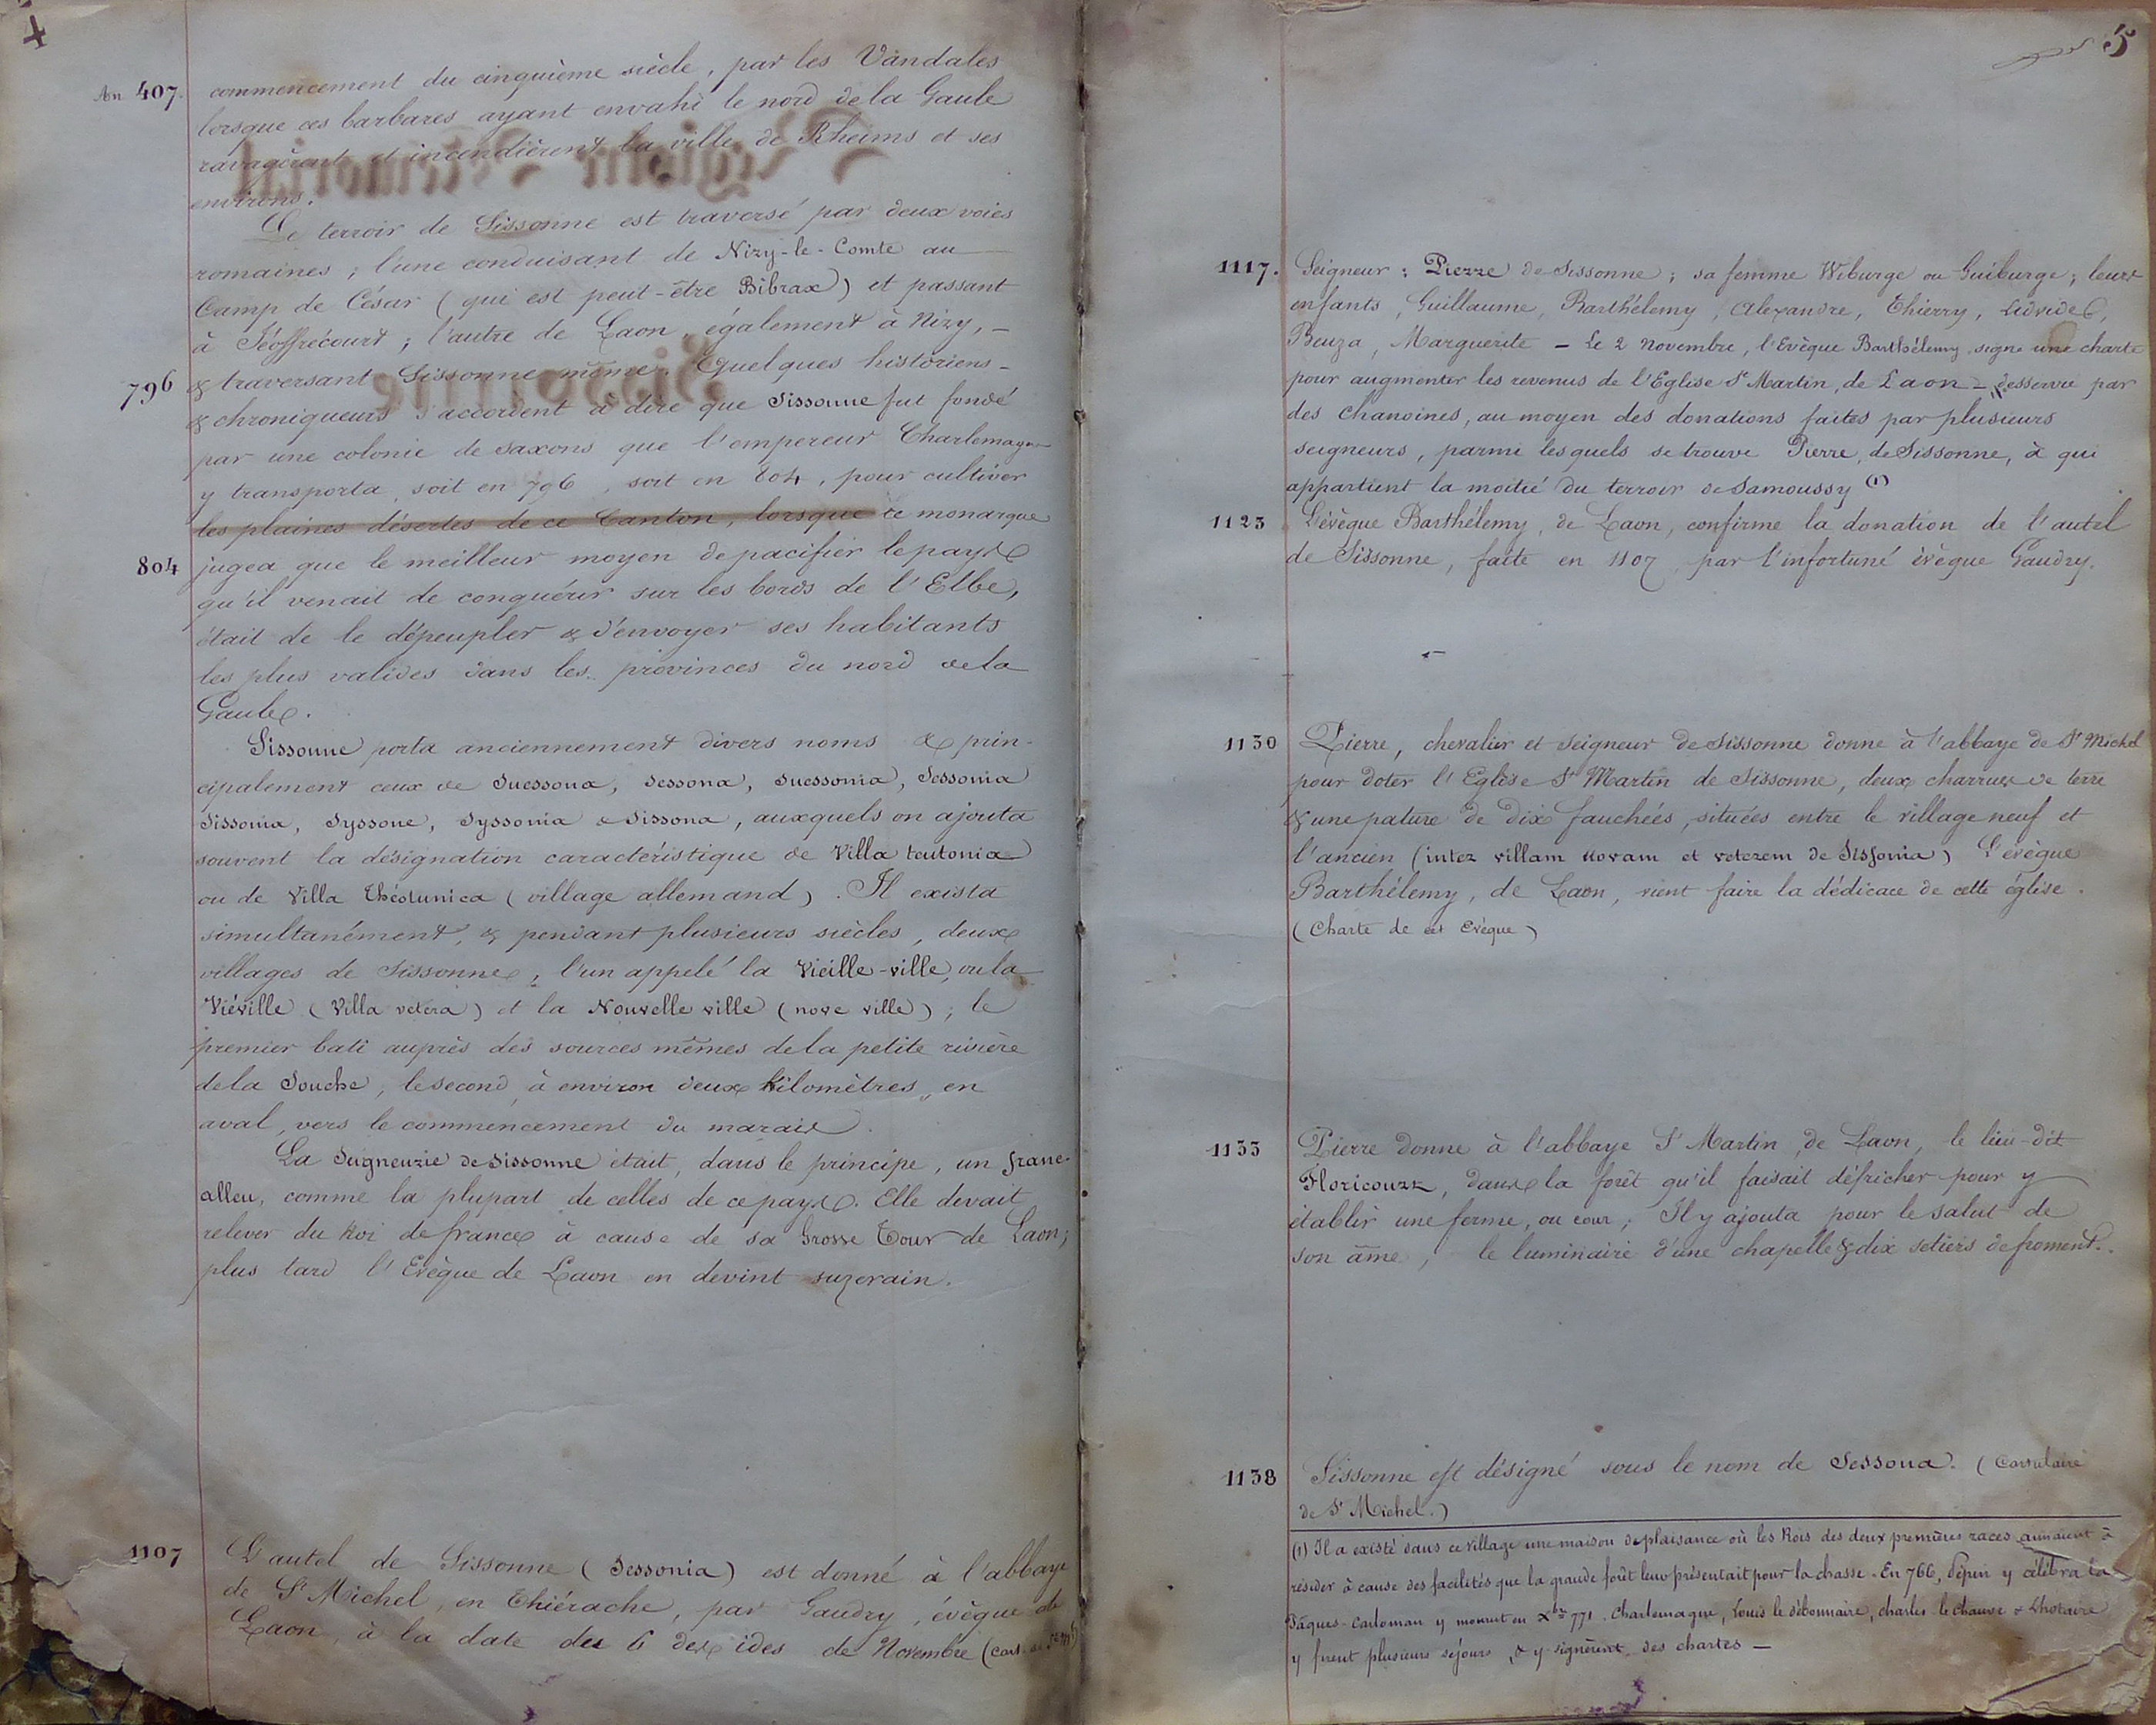 4
An 407. commencement du cinquième siècle, par les Vandales
lorsque ces barbares ayant envahi le nord de la Gaule
ravagèrent et incendièrent la ville de Rheims et ses
environs.
Le terroir de Sissonne est traversé par deux voies
romaines ; l'une conduisant de Nizy-le-Comte au
Camp de César (qui est peut-être Bibrax) et passant
à Jéoffrécourt ; l'autre de Laon, également à Nizy, -
796 & traversant Sissonne même. Quelques historiens -
& chroniqueurs s'accordent à dire que Sissonne fut fondé
par une colonie de saxons que l'empereur Charlemagne
y transporta, soit en 796, soit en 804, pour cultiver
les plaines désertes de ce Canton, lorsque ce monarque
804 jugea que le meilleur moyen de pacifier le pays
qu'il venait de conquérir sur les bords de l'Elbe,
était de le dépeupler & d'envoyer ses habitants
les plus valides dans les provinces du nord de la
Gaule.
Sissonne porta anciennement divers noms & prin-
cipalement ceux de Suessona, Sessona, Suessonia, Sessonia
Sissonia, Syssone, Syssonia & Sissona, auxquels on ajouta
souvent la désignation caractéristique de Villa teutonia
ou de Villa Théotunica (village allemand). Il exista
simultanément, & pendant plusieurs siècles, deux
villages de Sissonne, l'un appelé la Vieille-ville, ou la
Viéville (Villa vetera) et la Nouvelle ville (nove ville) ; le
premier bati auprès des sources mêmes de la petite rivière
de la Souche, le second, à environ deux kilomètres, en
aval, vers le commencement du marais.
La Seigneurie de Sissonne était, dans le principe, un franc-
alleu, comme la plupart de celles de ce pays. Elle devait
relever du Roi de france à cause de sa Grosse Tour de Laon ;
plus tard l'Evèque de Laon en devint suzerain.
1107 L'autel de Sissonne (Sessonia) est donné à l'abbaye
de St Michel, en Thiérache, par Gaudry, évèque de
Laon, à la date des 6 des ides de Novembre (Cart. de St
5
1117. Seigneur : Pierre de Sissonne ; sa femme Wiburge ou Guiburge ; leurs
enfants, Guillaume, Barthélemy, Alexandre, Thierry,
Beuza, Marguerite - Le 2 Novembre, l'Evèque Barthélemy, signe une charte
pour augmenter les revenus de l'Eglise St Martin, de Laon - desservie par
des chanoines, au moyen des donations faites par plusieurs
seigneurs, parmi lesquels se trouve Pierre, de Sissonne, à qui
appartient la moitié du terroir de Samoussy (1)
1123 L'évèque Barthélemy, de Laon, confirme la donation de l'autel
de Sissonne, faite en 1107 par l'infortuné évèque Gaudry.
1130 Pierre, chevalier et seigneur de Sissonne donne à l'abbaye de St Michel
pour doter l'Eglise St Martin de Sissonne, deux charrues de terre
& une pature de dix fauchées, situées entre le village neuf et
l'ancien (inter villam novam et veterem de Sissonia) L'évèque
Barthélemy, de Laon, vient faire la dédicace de cette église.
(Charte de cet Evèque)
1133 Pierre donne à l'abbaye St Martin, de Laon, le lieu-dit
Floricourt, dans la forêt qu'il faisait défricher pour y
établir une ferme, ou cour ; Il y ajouta pour le salut de
son âme, le luminaire d'une chapelle & dix setiers de froment.
1138 Sissonne est désigné sous le nom de Sessona. (Cartulaire
de St Michel.)
(1) Il a existé dans ce village une maison de plaisance où les Rois des deux premières races aimaient à
résider à cause des facilités que la grande forêt leur présentait pour la chasse. En 766, Pépin y célébra la
Pâques. Carloman y mourut en Xbre 771. Charlemagne, Louis le débonnaire, charles le chauve & Lhotaire
y firent plusieurs séjours, & y signèrent des chartes -